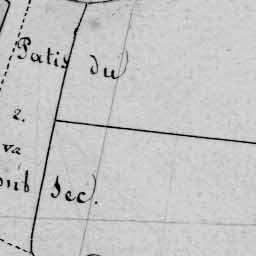 Patis du
2.
va
out sec.